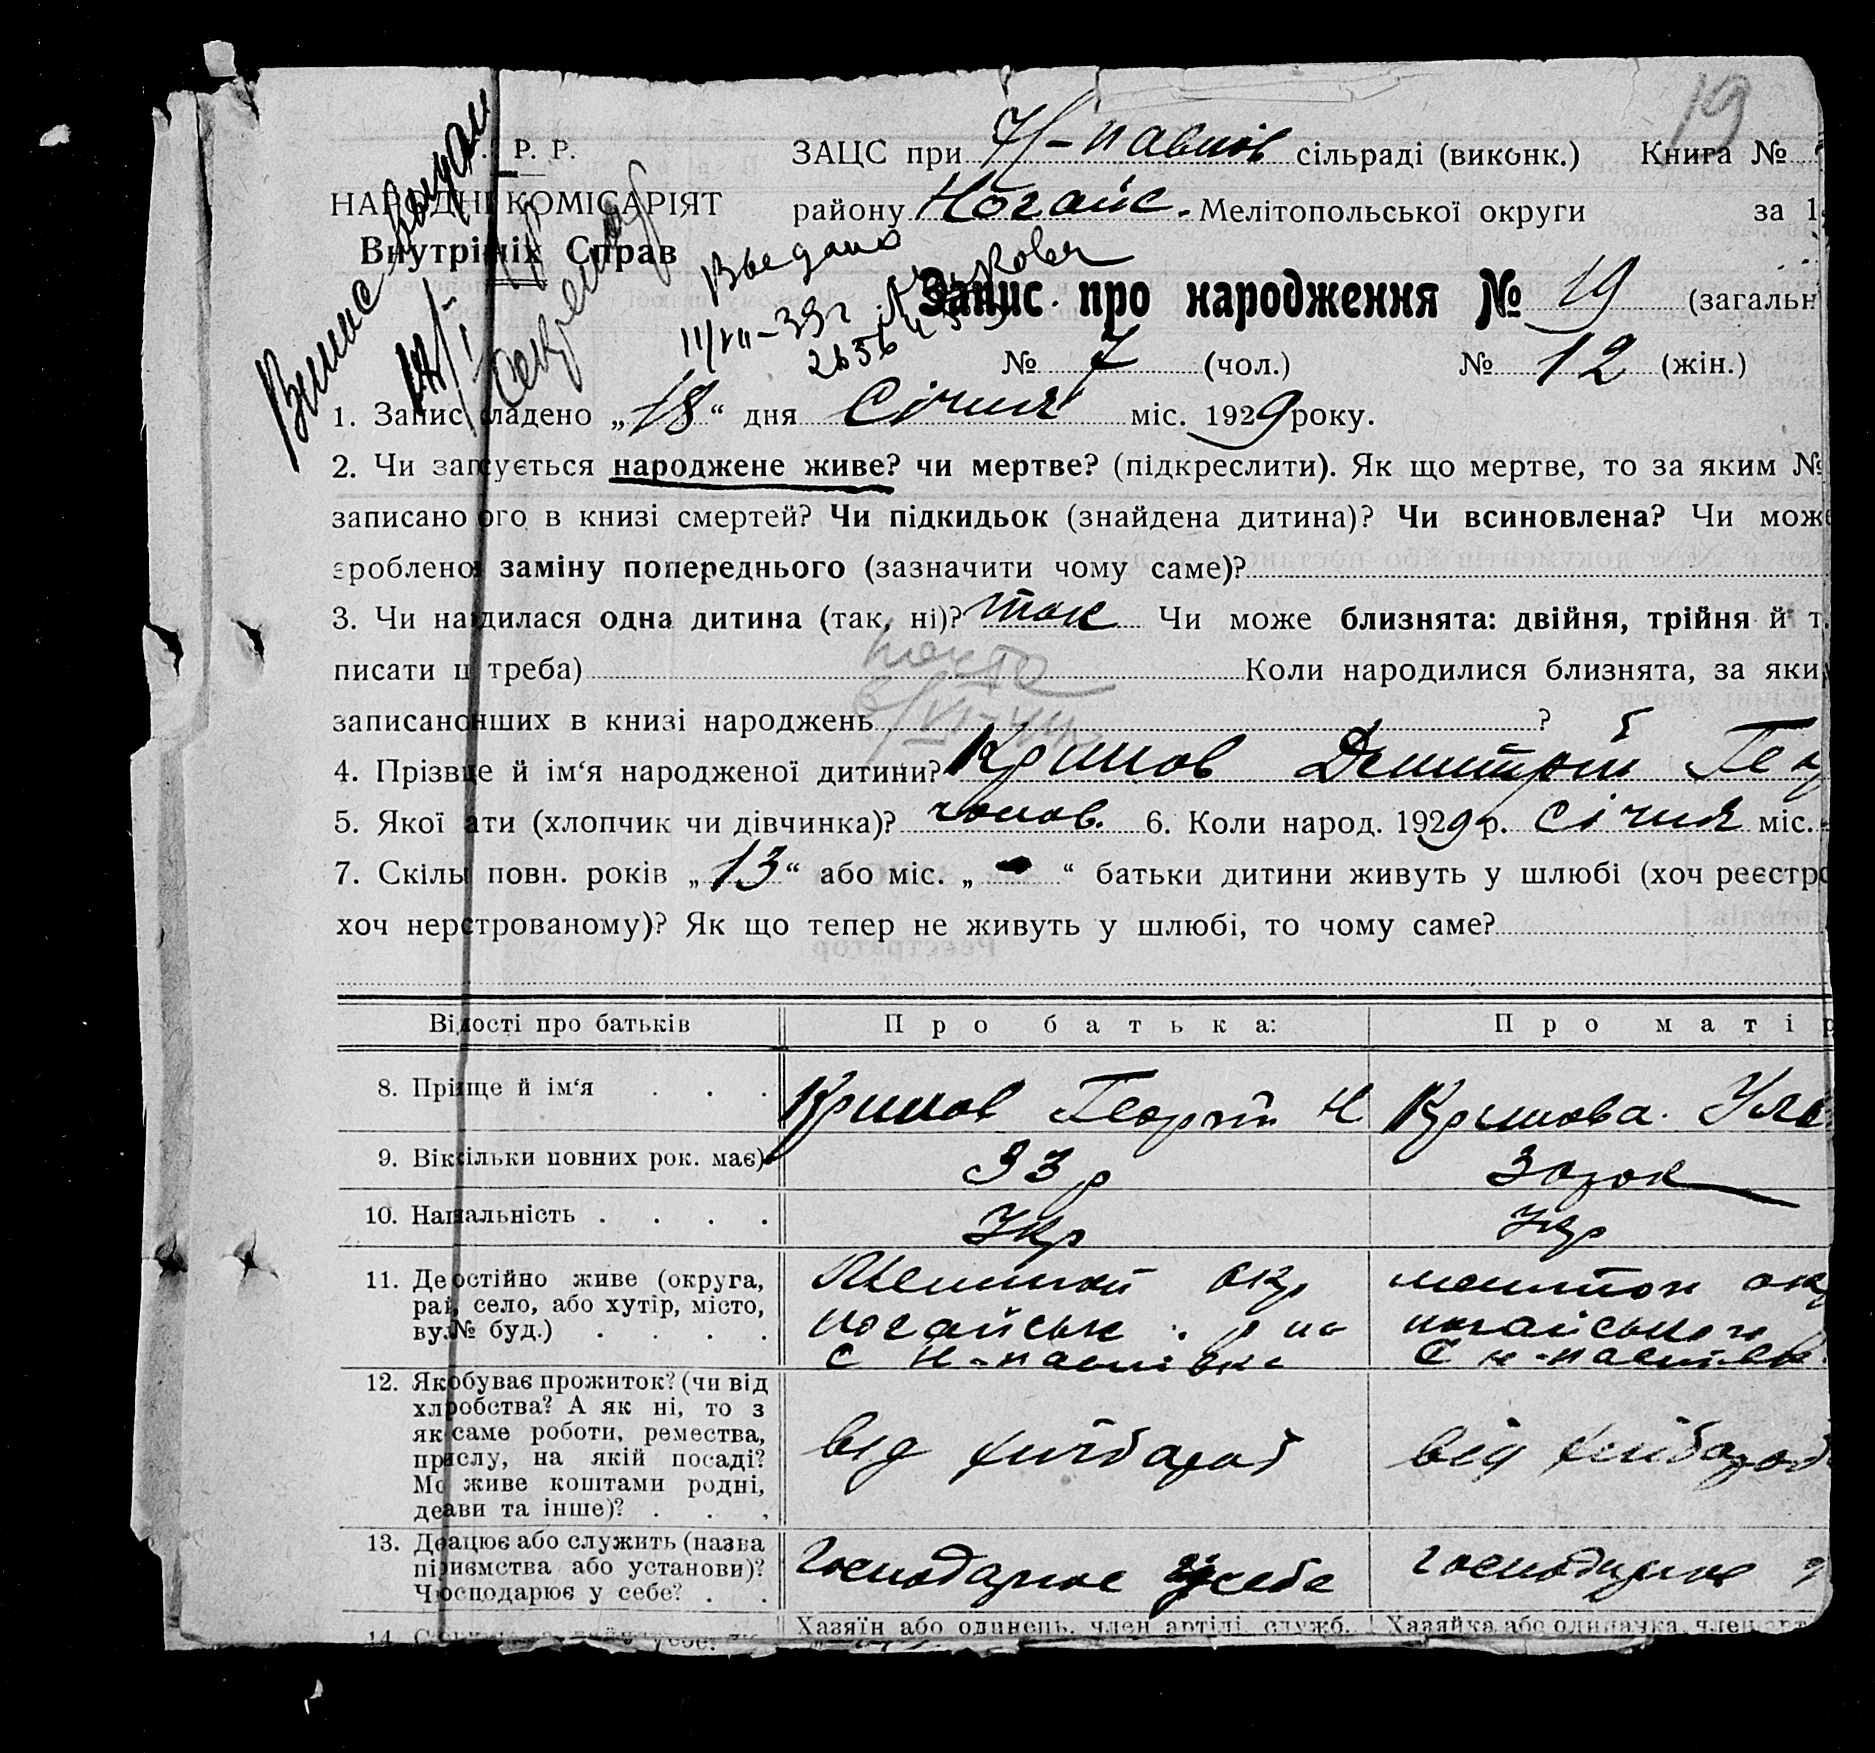 Р. Р.
НАРОДНІ КОМІСАРІЯТ
Внутрішніх Справ
Выдано
11/VII-39 г.
ЗАЦС при Н-Павлов сільраді (виконк.) Книга №
району Ногайс. Мелітопольської округи за 1
19
Запис про народження № 19 (загальн
№ 7 (чол.) № 12 (жін.)
1. Запис ладено „18“ дня Січня міс. 1929 року.
2. Чи запсується народжене живе? чи мертве? (підкреслити). Як що мертве, то за яким №
записано ого в книзі смертей? Чи підкидьок (знайдена дитина)? Чи всиновлена? Чи може
зроблено заміну попереднього (зазначити чому саме)?
3. Чи надилася одна дитина (так, ні)? так Чи може близнята: двійня, трійня й т.
писати щ треба) Коли народилися близнята, за яки
записано нших в книзі народжень ?
4. Прізвще й ім‘я народженої дитини? Кримов Дмитрій Гео
5. Якої ати (хлопчик чи дівчинка)? чолов. 6. Коли народ. 1929 р. Січня міс.
7. Скільк повн. років „13“ або міс. „-“ батьки дитини живуть у шлюбі (хоч реєстро
хоч нерстрованому)? Як що тепер не живуть у шлюбі, то чому саме?
Відості про батьків Про батька: Про матір
8. Прізище й ім‘я . . . Кримов Георгій Н Кримова Уля
9. Вік кільки повних рок. має) 33 р 30 рок
10. Націальність . . . . Укр Укр
11. Де остійно живе (округа, Мелитоп окр мелитоп окр
рай, село, або хутір, місто, ногайськ р на ногайського
ву.№ буд.) . . . . С Н-павлівка С Н-павлівк
12. Як обуває прожиток? (чи від
хлробства? А як ні, то з
як саме роботи, ремества, від хлібороб від хлібороб
прислу, на якій посаді?
Мо живе коштами родні,
деави та інше)? . . .
13. Де ацює або служить (назва
підриємства або установи)? Господарює у себе господарює у
Чи осподарює у себе? . .
14. Хазяїн або одинець, член артілі, служб. Хазяйка або одиначка, член арт